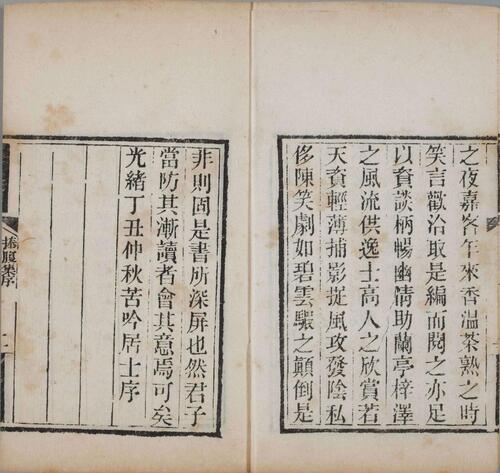 之夜嘉客乍來香溫茶熟之時
笑言歡洽取是編而閱之亦足
以資談柄暢幽情助蘭亭梓澤
之風流供逸士高人之欣賞若
天賁輕薄捕影捉風攻發陰私
侈陳笑劇如碧雲騢之顛倒是
非則固是書所深屏也然君子
當防其漸讀者會其意焉可矣
光緒丁丑仲秋苦吟居士序
捧腹集序